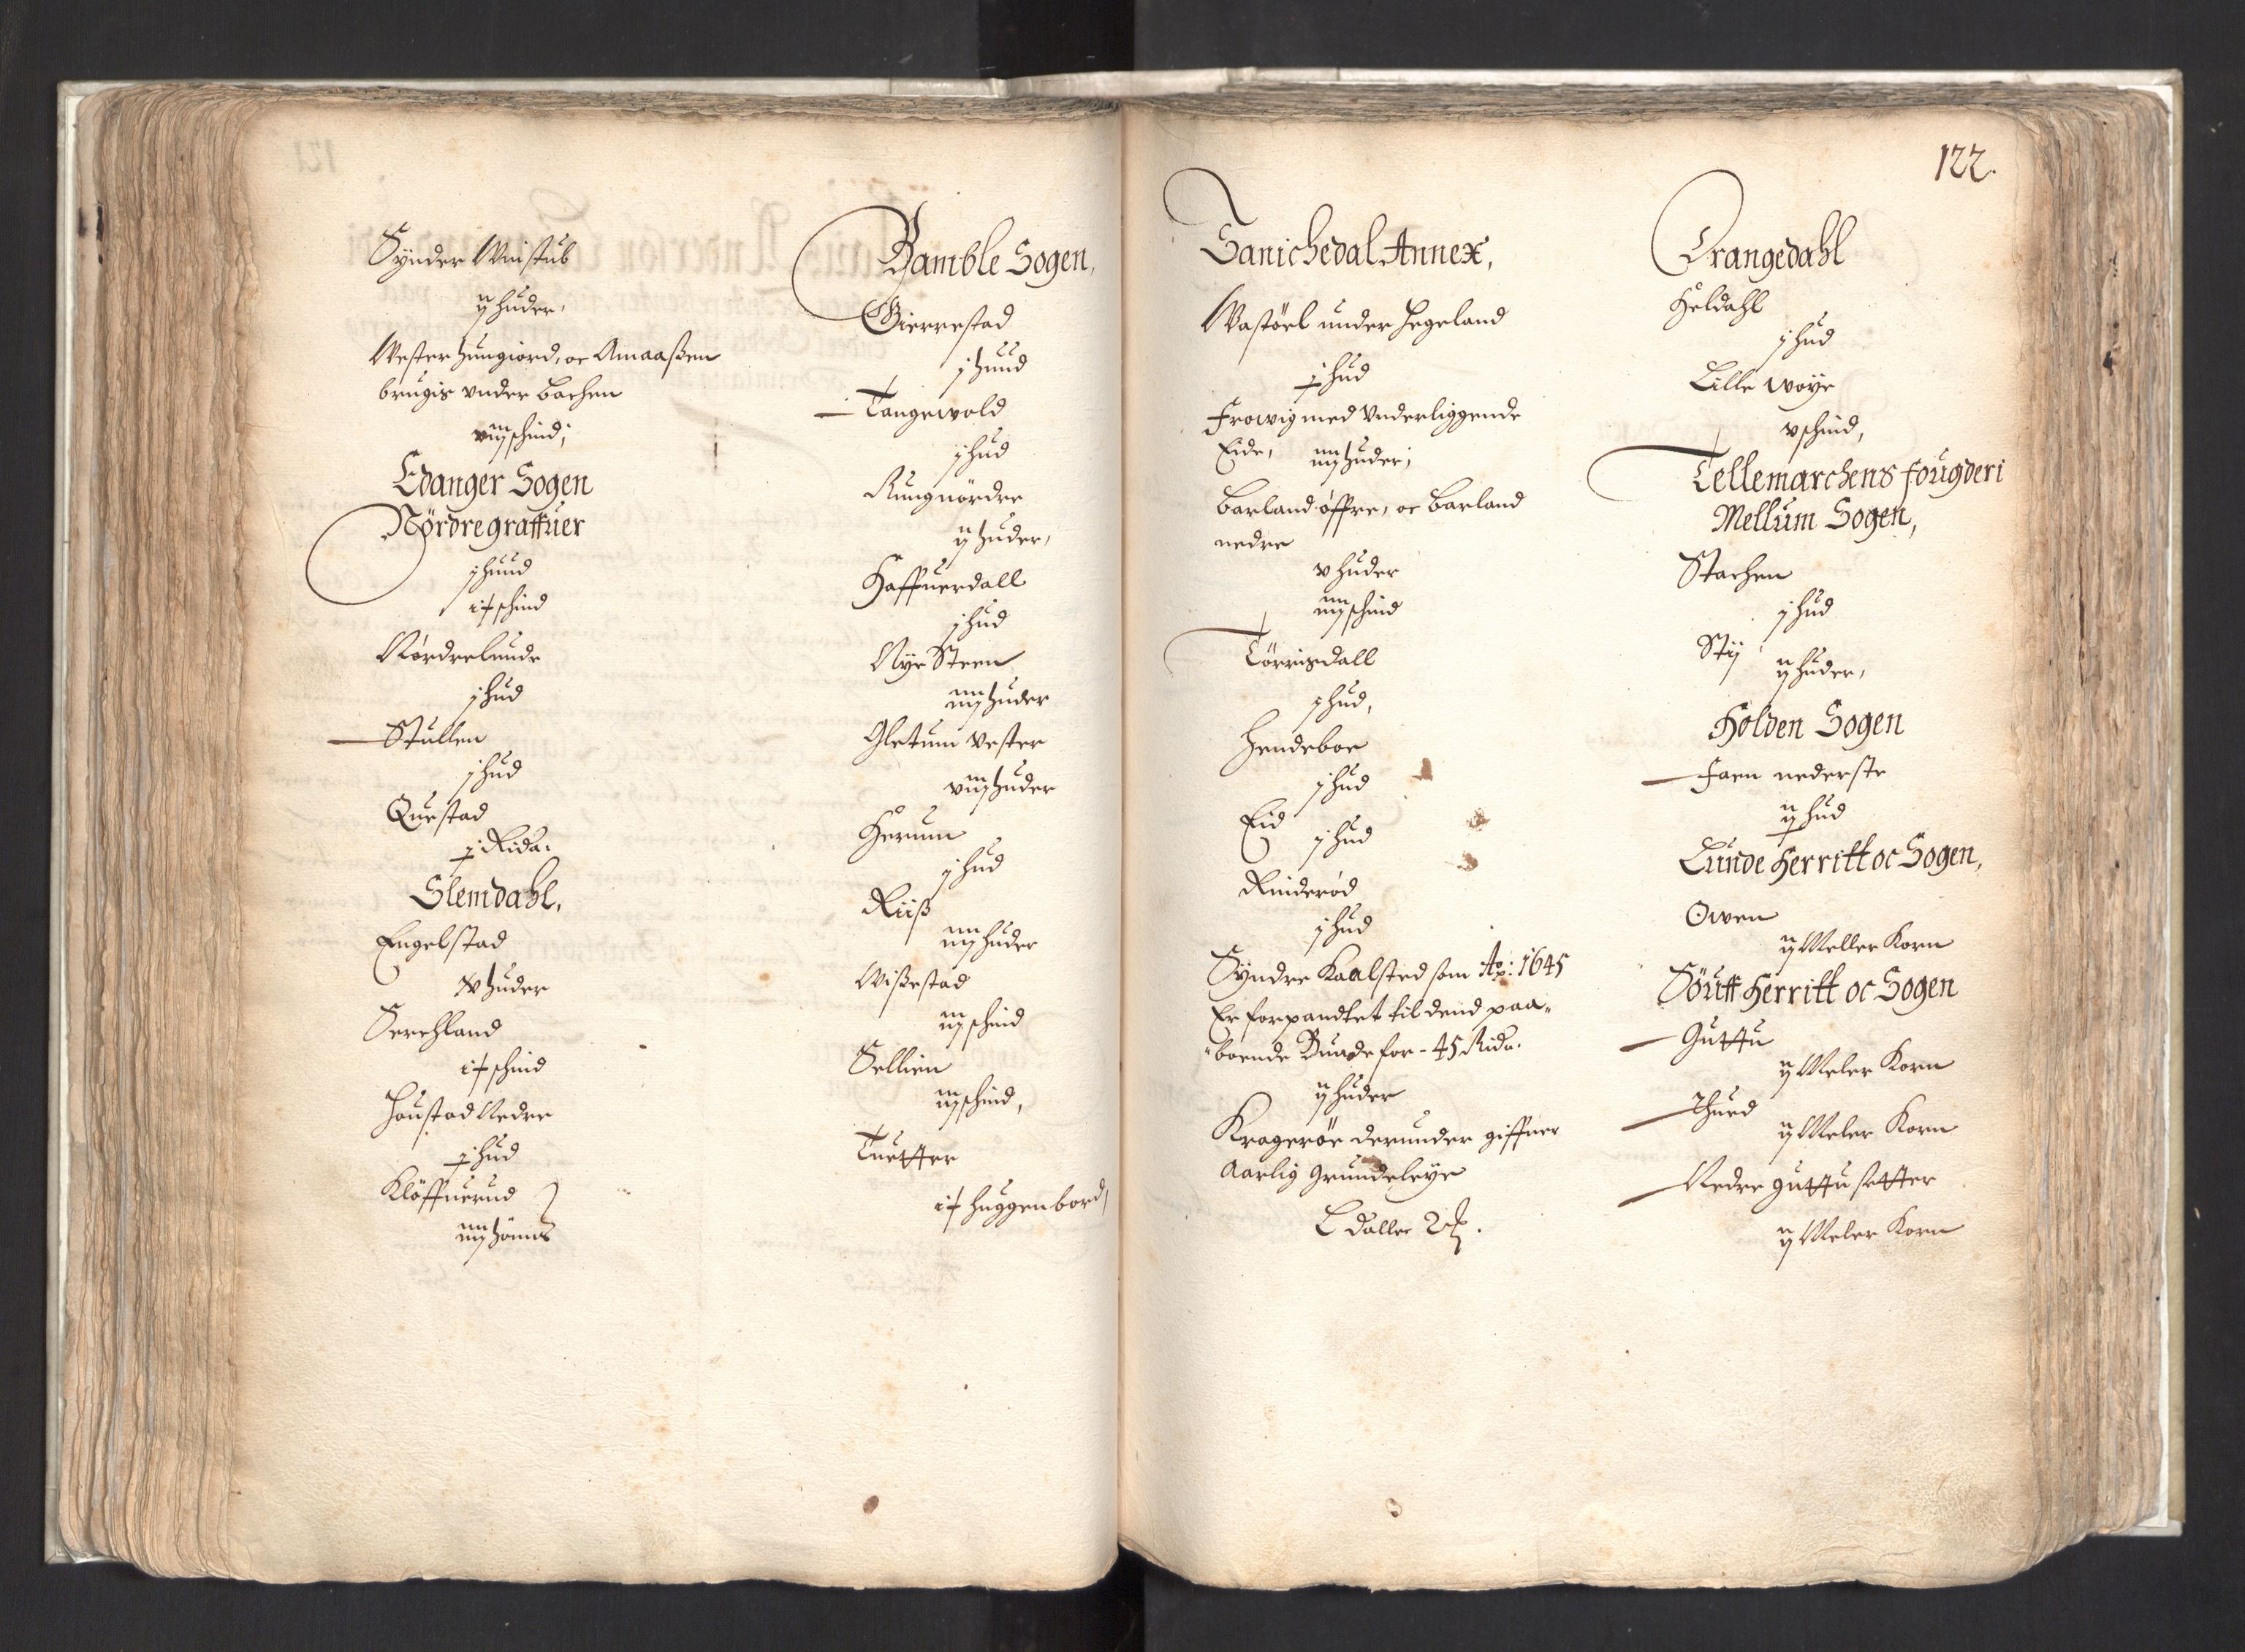 Synder Winstub
ij huder,
Wester Hungiord, oc Amaaßen
brugis vnder Bachen
viij schind;
Edanger Sogen
Nørdregraffuer
j huud
ix schind
Nørdrelunde
j hud
Stullen
j hud
Questad
j Ridr:
Slemdahl,
Engelstad
xv huder
Serchland
ix schind
Houstad Nedre
j hud
Kløffuerud
iiij hommis
Bamble Sogen,
Gierrestad
j huud
Tangevold
j hud
Rungnørdre
ij huder,
Haffuerdall
j hud
Nye Steen
iiij huder
Gletum vester
viij huder
Herum
j hud
Riiß
iiij huder
Wißestad
iij schind
Sellien
iij schind,
Tuetter
ix huggenbord,
122.
Sanichedal Annex,
Wastøel under Hegeland
j hud
Frowig med vnderliggende
Eide, iiij huder;
Barland øffre, oc Barland
nedre
v huder
iiij schind
Tørrisdall
j hud,
Hendeboe
j hud
Eid
j hud
Rinderød
j hud
Syndre Kaalsted som Ao: 1645
Er forpandtet til dend paa-
boende Bunde for - 45 Ridr.
ij huder
Kragerøe derunder giffuer
Aarlig Grundeleye
L daller
Drangedahl
Heldahl
j hud
Lille Woye
v schind,
Tellemarchens fougderi
Mellum Sogen,
Stachen
j hud
Stij
ij huder,
Holden Sogen
Faen nederste
ij hud
Lunde Herritt oc Sogen,
Owen
ij Meller Korn
Søuff Herritt oc Sogen
Guttu
ij Meler Korn
Thued
ij Meler Korn
Nedre Guttu setter
ij Meler Korn